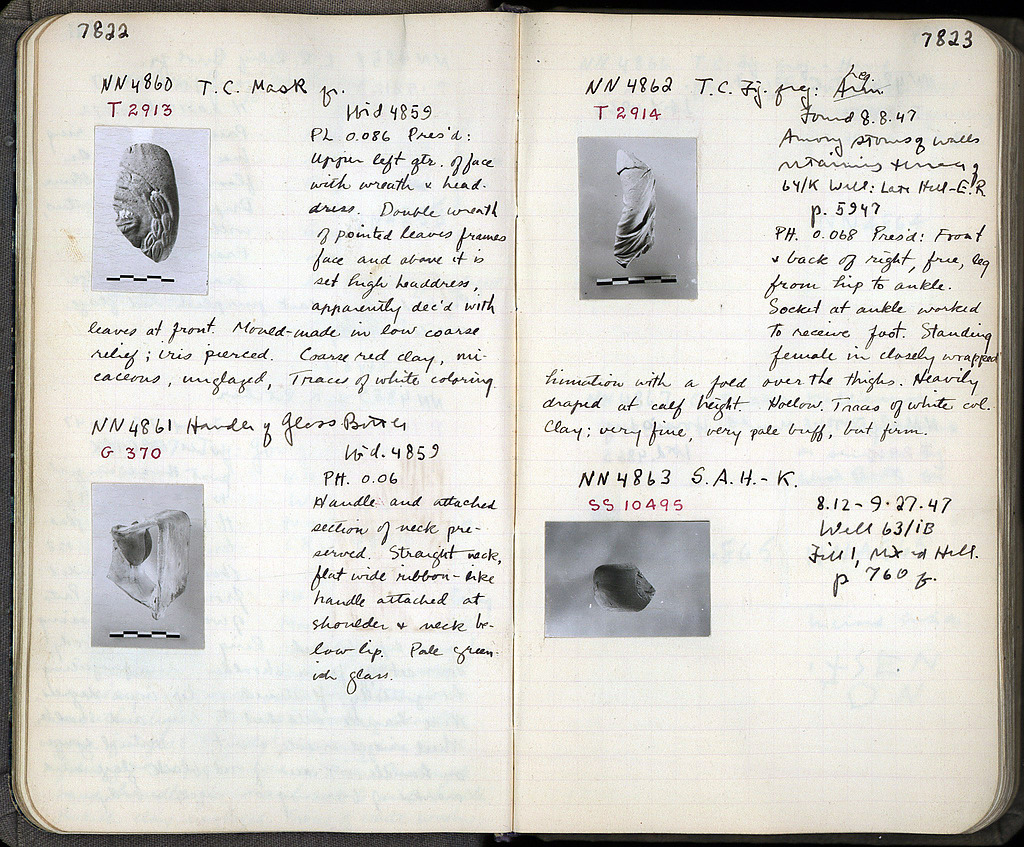 7822
NN4860 T.C. Mask fr.
T 2913
Wid 4859
PL 0.086 Pres'd:
Upper left qtr. of face
with wreath & head-
dress. Double wreath
of pointed leaves frames
face and above it is
set high headdress,
apparently dec'd with
leaves at front. Mould-made in low coarse
relief; iris pierced. Coarse red clay, mi-
caceous, unglazed, Traces of white coloring.
NN4861 Handle of Glass Bottle
G 370
Wid. 4859
PH. 0.06
Handle and attached
section of neck pre-
served. Straight neck,
flat wide ribbon-like
handle attached at
shoulder & neck be-
low lip. Pale green-
ish glass.
7823
NN 4862 T.C. Fig. frg: Arm Leg
T 2914
Found 8.8.47
Among stones of walls
64/K Well: Late Hell-E.R
p. 5947
PH. 0.068 Pres'd: Front
& back of right, free, leg
from hip to ankle.
Socket at ankle worked
to receive foot. Standing
female in closely wrapped
himation with a fold over the thighs. Heavily
draped at calf height. Hollow. Traces of white col.
Clay; very fine, very pale buff, but firm.
NN 4863 S.A.H.-K.
SS 10495
8.12-9.27.47
Well 63/IB
Fill 1, Mxd Hell.
p 760 f.